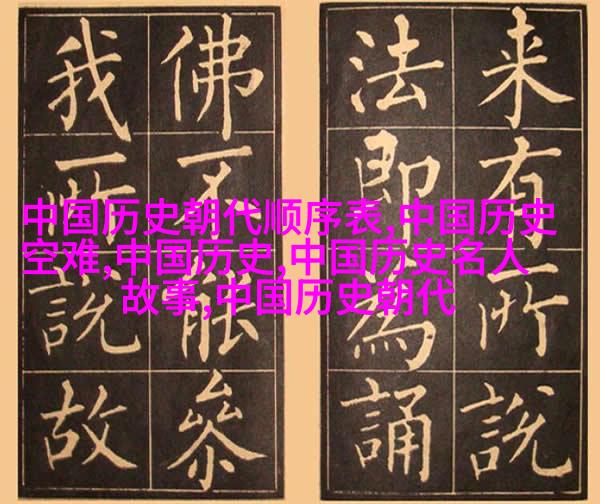 中国历史朝代顺序表,中国历史
空难,中国历史,中国历史名人
故事,中国历史朝代
来有所說
法即為誦
佛不能參
我所說故